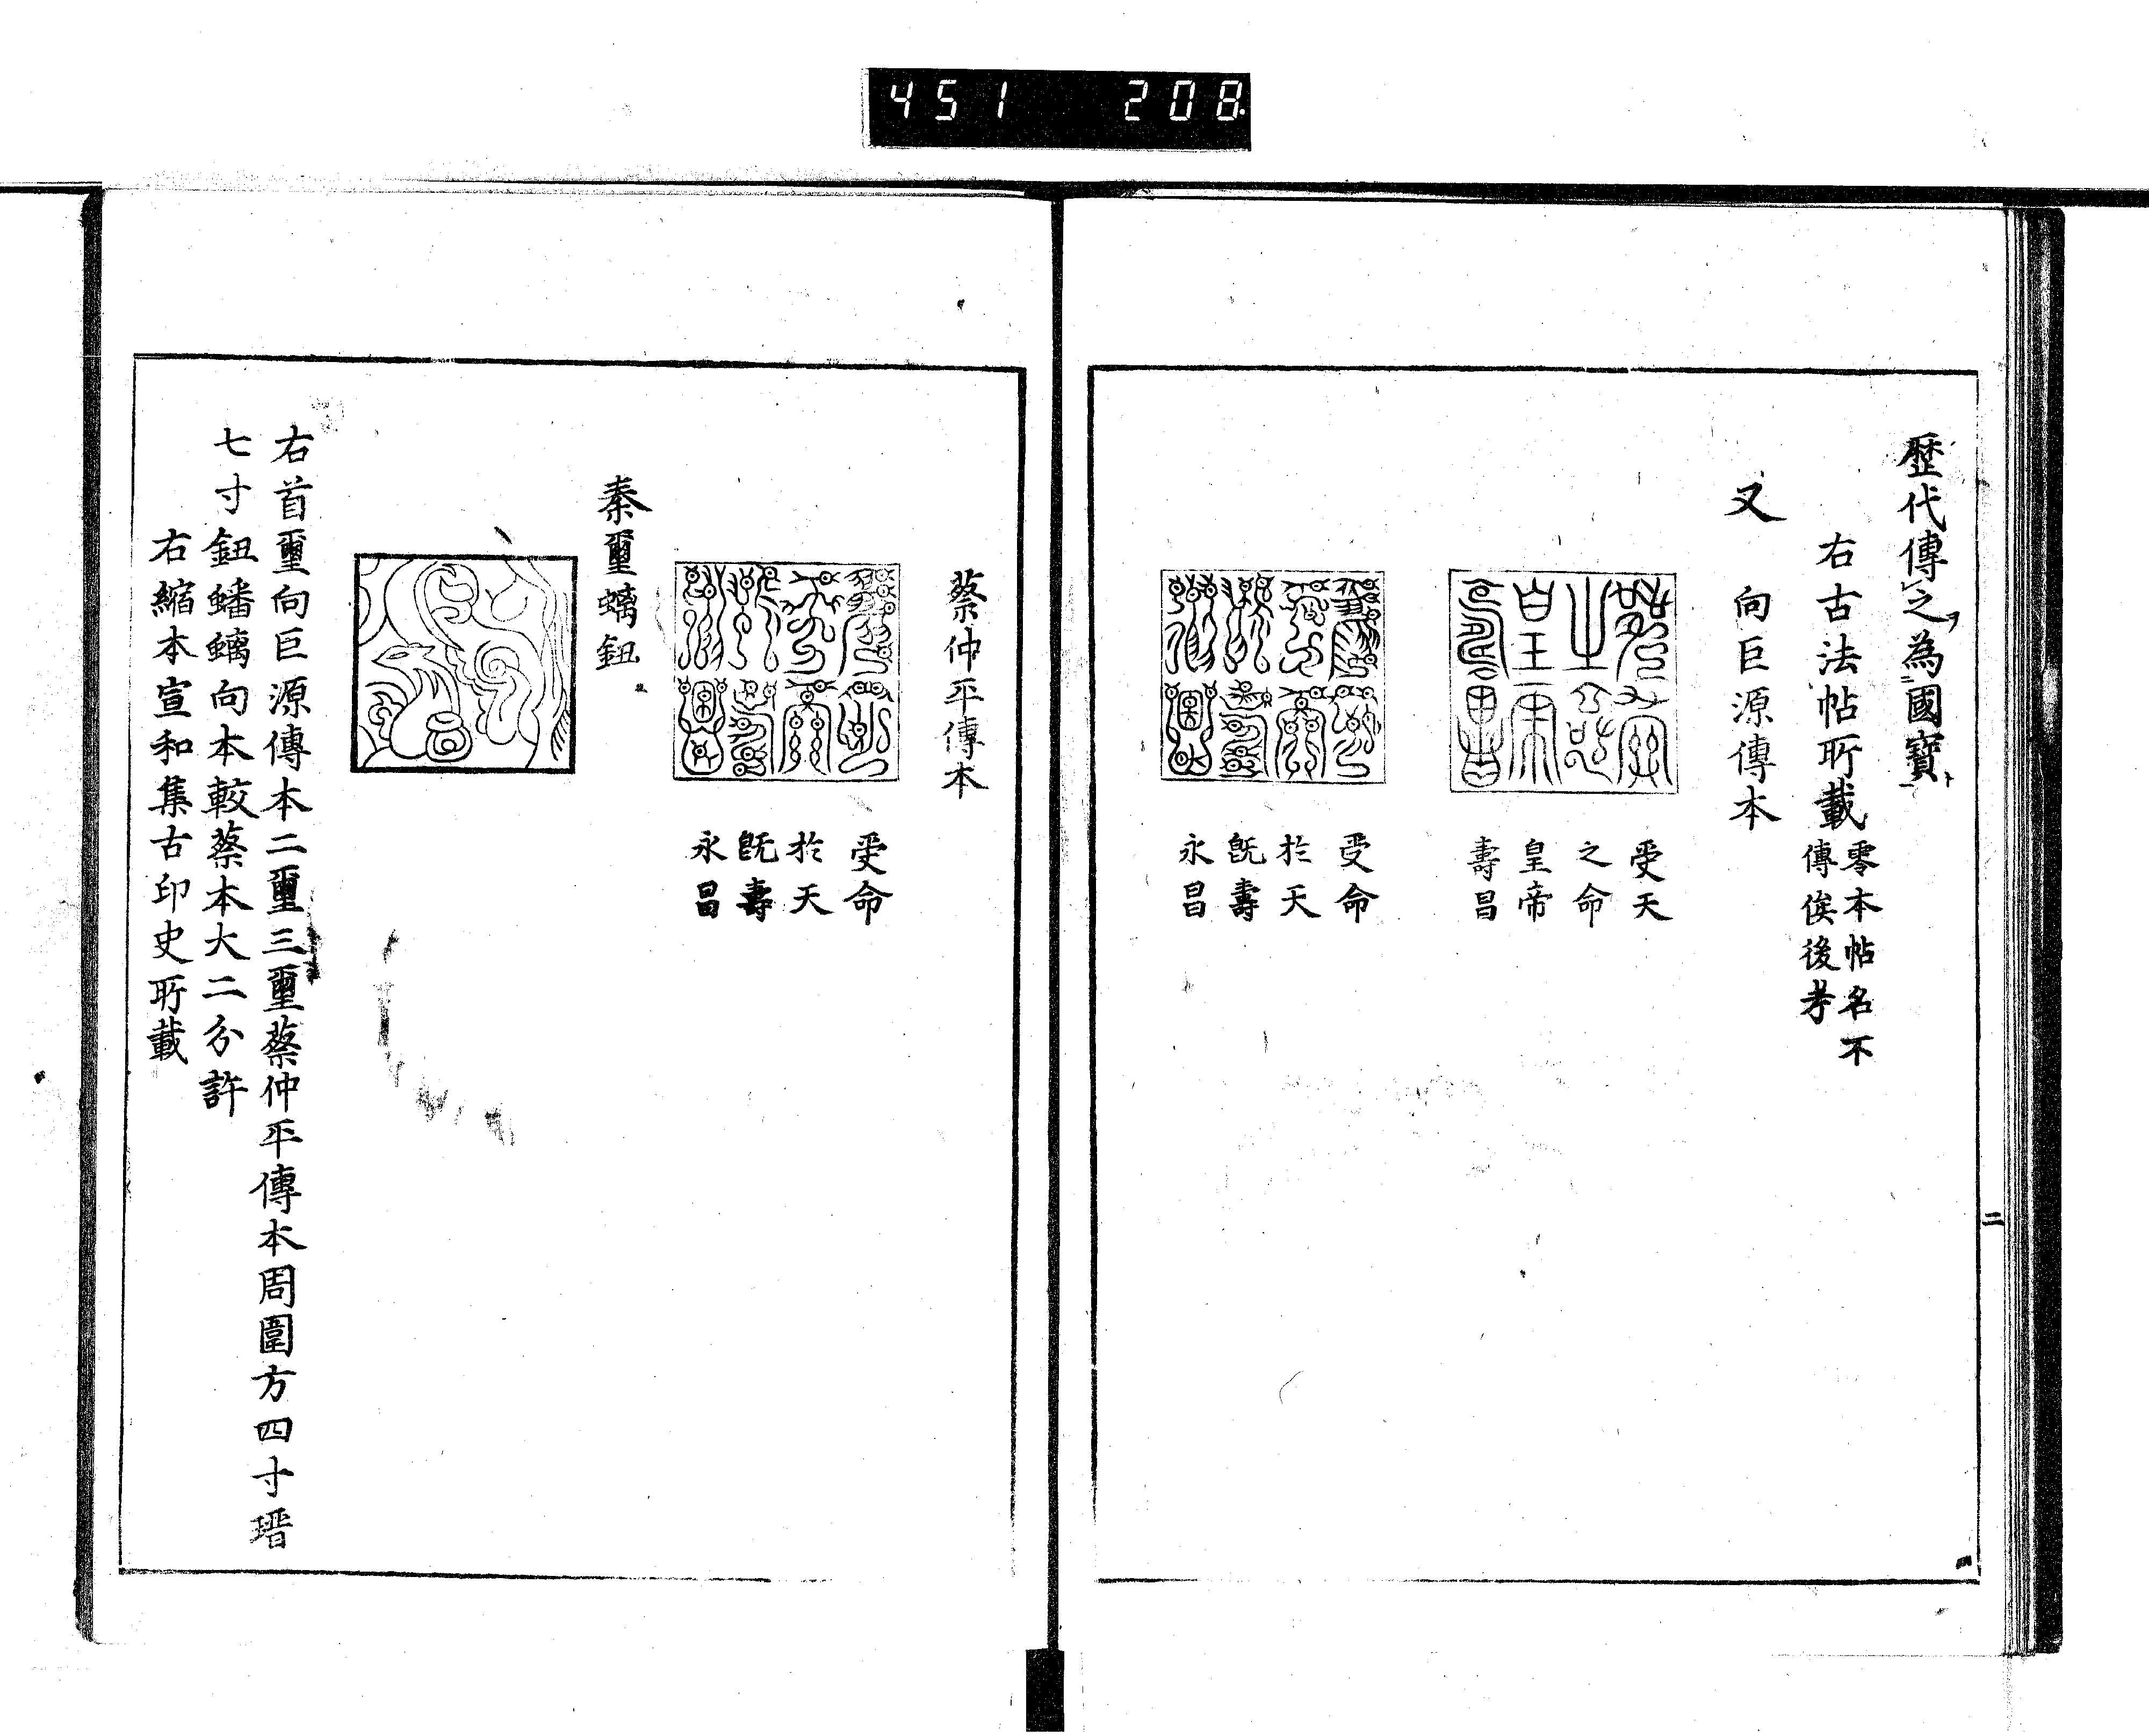 451 208
歷代傳之為國寶
右古法帖所載
零本帖名不
傳俟後考
又 向巨源傳本
受天
之命
皇帝
壽昌
受命
於天
既壽
永昌
二
蔡仲平傳本
受命
於天
既壽
永昌
秦璽螭鈕
右首璽向巨源傳本二璽三璽蔡仲平傳本周圍方四寸瑨
七寸鈕蟠螭向本較蔡本大二分許
右縮本宣和集古印史所載